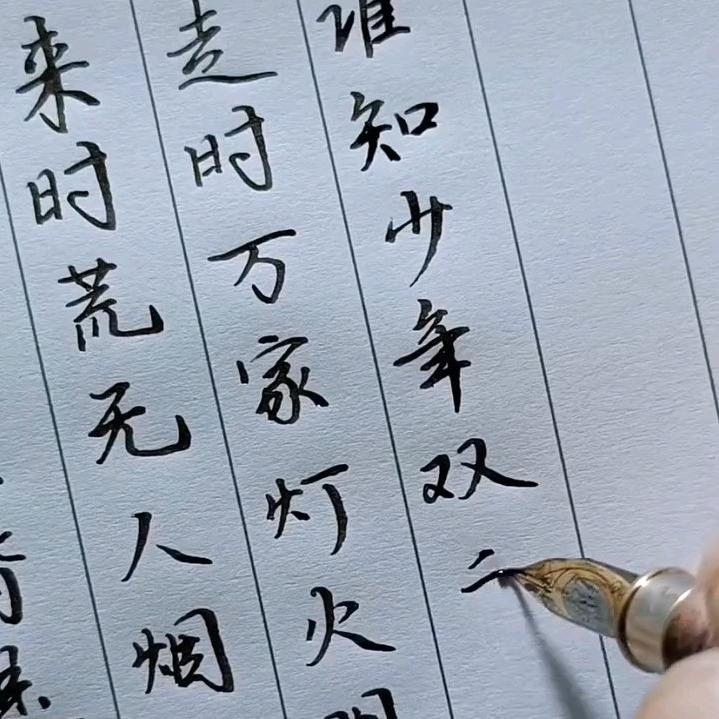 来时荒无人烟
走时万家灯火
谁知少年双